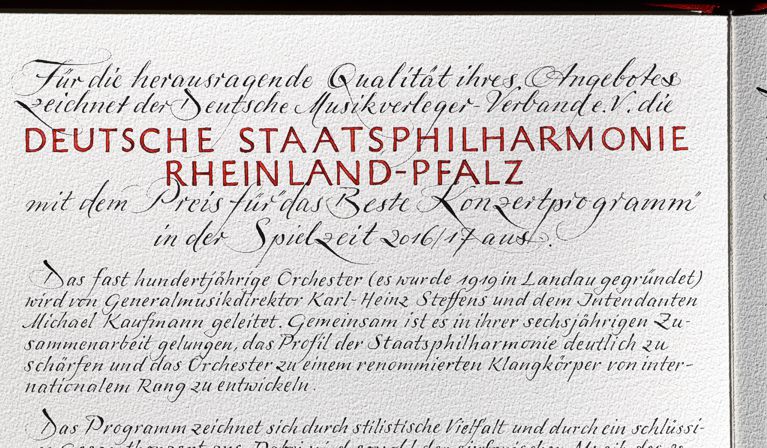 Für die herausragende Qualität ihres Angebotes
zeichnet der Deutsche Musikverleger-Verband e.V. die
DEUTSCHE STAATSPHILHARMONIE
RHEINLAND-PFALZ
mit dem Preis für "das Beste Konzertprogramm"
in der Spielzeit 2016/17 aus.
Das fast hundertjährige Orchester (es wurde 1919 in Landau gegründet)
wird von Generalmusikdirektor Karl-Heinz Steffens und dem Intendanten
Michael Kaufmann geleitet. Gemeinsam ist es in ihrer sechsjährigen Zu-
sammenarbeit gelungen, das Profil der Staatsphilharmonie deutlich zu
schärfen und das Orchester zu einem renommierten Klangkörper von inter-
nationalem Rang zu entwickeln.
Das Programm zeichnet sich durch stilistische Vielfalt und durch ein schlüssi-